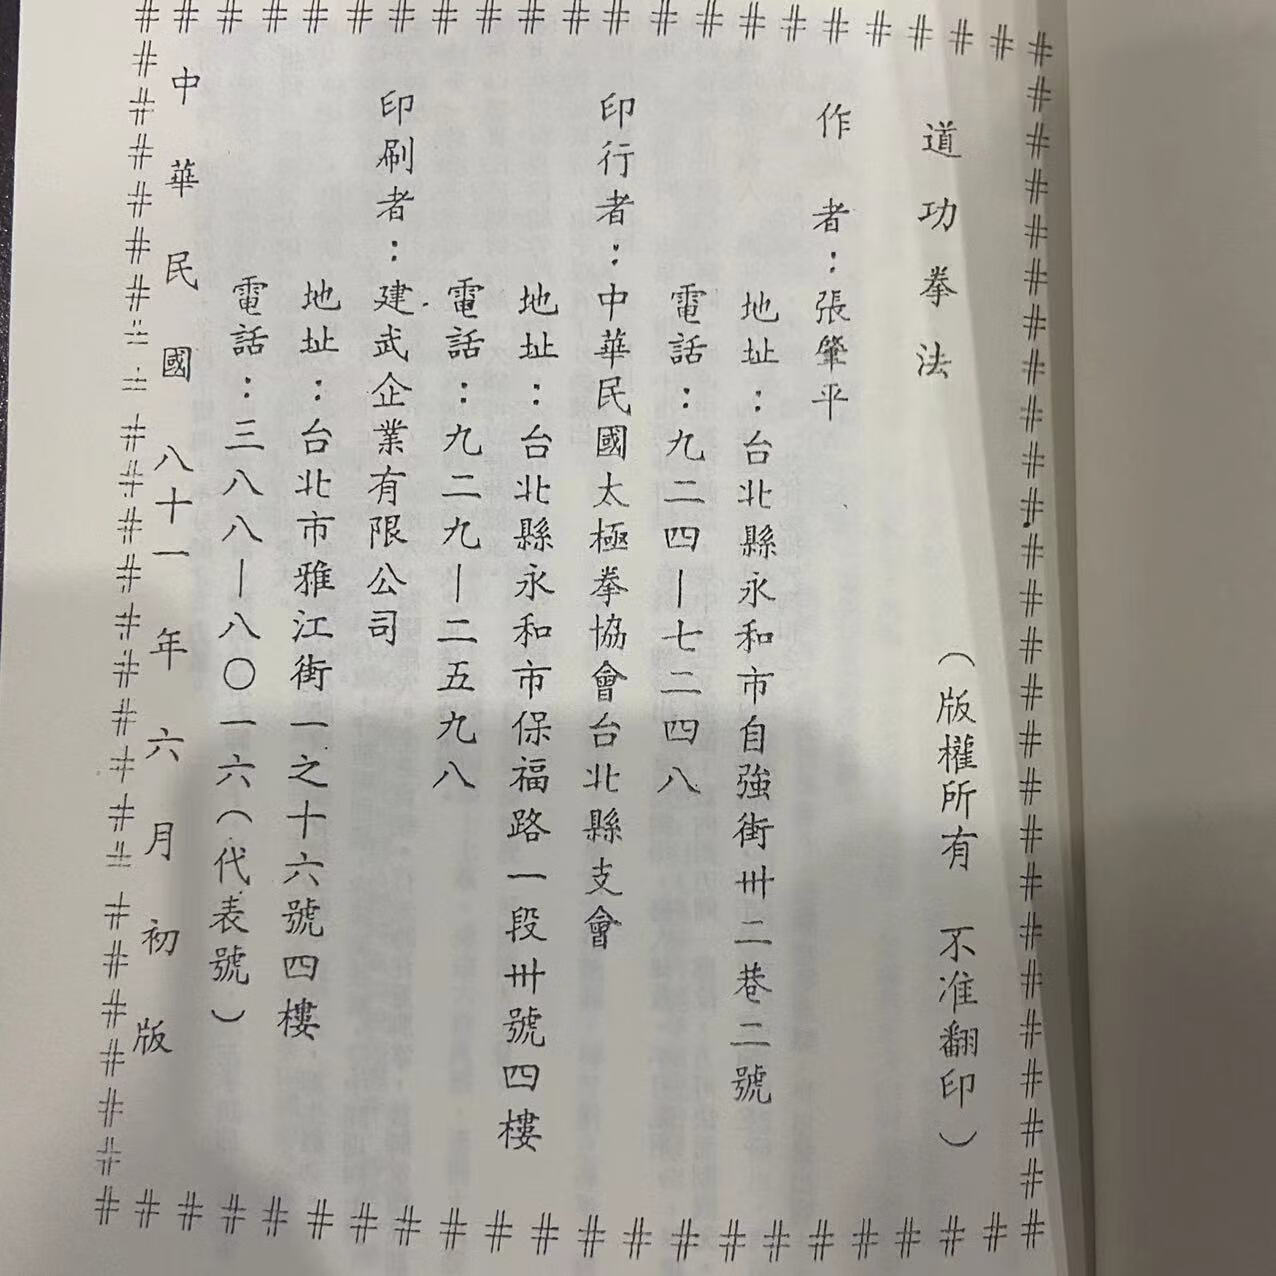 道功拳法
（版權所有　不准翻印）
作　者：張肇平
地址：台北縣永和市自強街卅二巷二號
電話：九二四—七二四八
印行者：中華民國太極拳協會台北縣支會
地址：台北縣永和市保福路一段卅號四樓
電話：九二九—二五九八
印刷者：建武企業有限公司
地址：台北市雅江街一之十六號四樓
電話：三八八—八〇一六（代表號）
中華民國八十一年六月初版